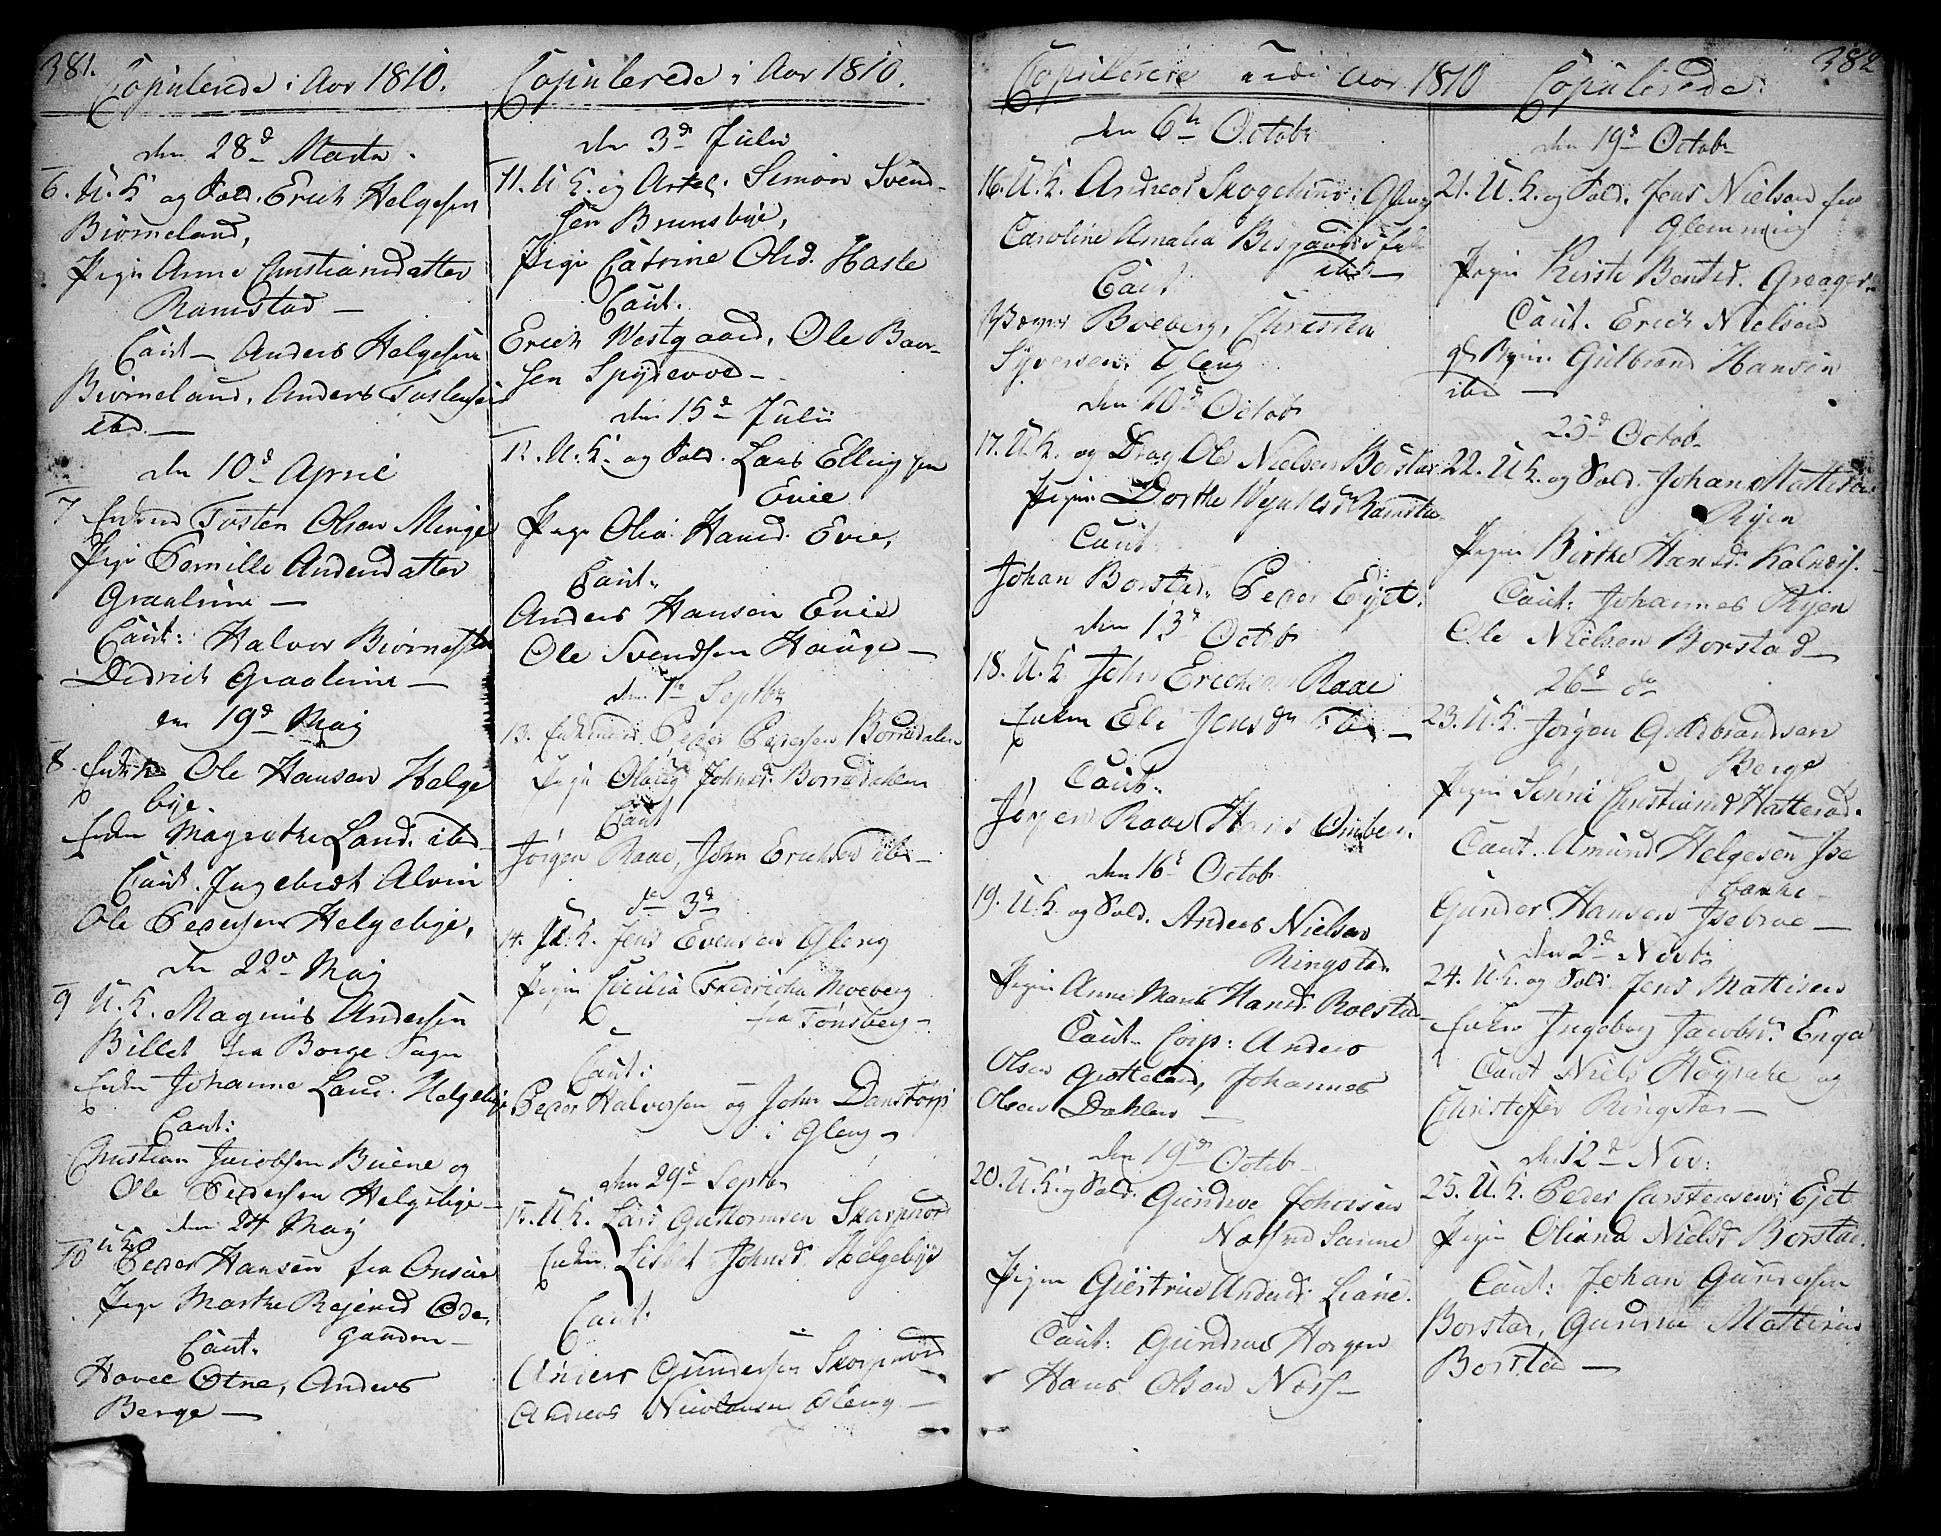 381.
Copulerede i Aar 1810.
den 28d Martii
6. U. K. og Sold. Erich Helgesen
Biörneland,
Pige Anne Christiansdatter
Ramstad —
Caut — Anders Helgesen
Biörneland, Anders Tostensen
ibd. —
den 10d April
7 Enkemd Tosten Olsen Minge
Pige Pernille Andersdatter
Graalum —
Caut: Halvor Biörnestad
Didrich Graalum —
den 19d Maj
8. Enkem Ole Hansen Helge
bye.
Enken Magrethe Land. ibd —
Caut. Ingebret Alvim
Ole Pedersen Helgebye,
den 22d Maj
9 U. K. Magnus Andersen
Billet fra Borge Sogn
Enken Johanne Laus. Helgebye
Caut:
Christian Jacobsen Buene og
Ole Pedersen Helgebye —
den 24 Maj
10 U K Peder Hansen fra Onsöe
Pige Marthe Rejersd Öde,
gaarden —
Caut.
Havel Otne, Anders
Berge —
Copulerede i Aar 1810.
den 3d Julii
11. U K. og Artel. Simon Svend-
sen Brunsbye,
Pige Catrine Olsd. Hasle
Caut.
Erich Westgaard, Ole Baar-
sen Spydevold —
den 15d Julii
12. U. K. og Sold. Lars Elling sen
Evie
Pige Olia Hansd. Evie,
Caut.
Anders Hansen Evie
Ole Svendsen Hauge —
den 1te Septbr
13. Enkemd. Peder Pedersen Borredalen
Pige Olaug Johnsd. Borredahlen
Caut
Jörgen Raae, John Erichsen ibd —
d. 3d
14. U. K. Jens Evensen Gleng
Pigen Cicilia Fredricha Moeberg
fra Tönsberg —
Caut:
Peder Halvorsen og John Danstorp
i Gleng —
den 29d Septbr
15. U K. Lars Guttormsen Skarpnord
Enken. Lisbet Johnsd. Helgebye
Caut:
Anders Gundersen Skarpnord
Andreas Nicolausen Gleng —
Copulerede i Aar 1810
den 6te Octobr
16. U. K. Andreas Skogelund i Gleng
Caroline Amalia Bisgaard
ibd —
Caut
Boeberg, Christen
Syversen Gleng
den 10d Octobr
17. U. K. og Drag Ole Nielsen Borstad
Pigen Dorthe Ramstad
Caut
Johan Borstad. Peder Eyet.
den 13d Octobr
18. U. K John Erichsen Raae
Enken Eli Jensdr Ibd —
Caut.
Jörgen Raae Hans Omberg.
den 16d Octobr
19. U. K. og Sold. Anders Nielsen
Ringstad
Pigen Anne Marie Hansd. Rolstad —
Caut. Corp: Anders
Olsen Grötteland, Johannes
Olsen Dahlen —
den 19de Octobr
20. U K. og Sold. Gundroe Johnsen
Sanne
Pigen Giertrue Andersd. Liane.
Caut: Gundroe Horgen
Hans Olsen Næss —
Copulerede.
382
den 19d Octobr
21. U. K. og Sold. Jens Nielsen fra
Glemming
Pigen Kirsti Bentsd. Greager
Caut. Erich Nielsen
Gulbrand Hansen
ibd —
25d Octobr
22. U K. og Sold. Johan Mattisen
Ryen
Pigen Birthe Hansd. Kalnæss.
Caut: Johannes Ryen
Ole Nielsen Borstad —
26d do
23. U. K. Jörgen Guldbrandsen
Berge
Pigen Sönni Christiansd Hatterød.
Caut. Amund Helgesen Ise
bakke
Gunder Hansen Isebroe —
den 2d Novbr
24. U. K. og Sold. Jens Mattisen
Enken Ingeborg Jacobsd. Enga
Caut Niels Höysæte og
Christoffer Ringstad —
den 12d Nov:
25. U. K. Peder Carstensen Eyet
Pigen Oliana Nielsd Borstad.
Caut: Johan Gundersen
Borstad, Gunder Mattisen
Borstad —